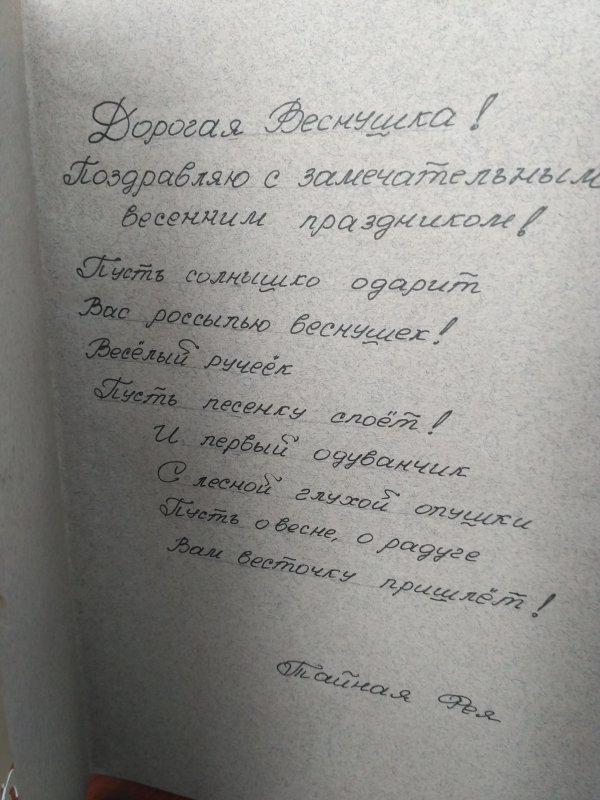 Дорогая Веснушка!
Поздравляю с замечательным
весенним праздником!
Пусть солнышко одарит
Вас россыпью веснушек!
Весёлый ручеёк
Пусть песенку споёт!
И первый одуванчик
С лесной глухой опушки
Пусть о весне, о радуге
Вам весточку пришлёт!
Тайная Фея